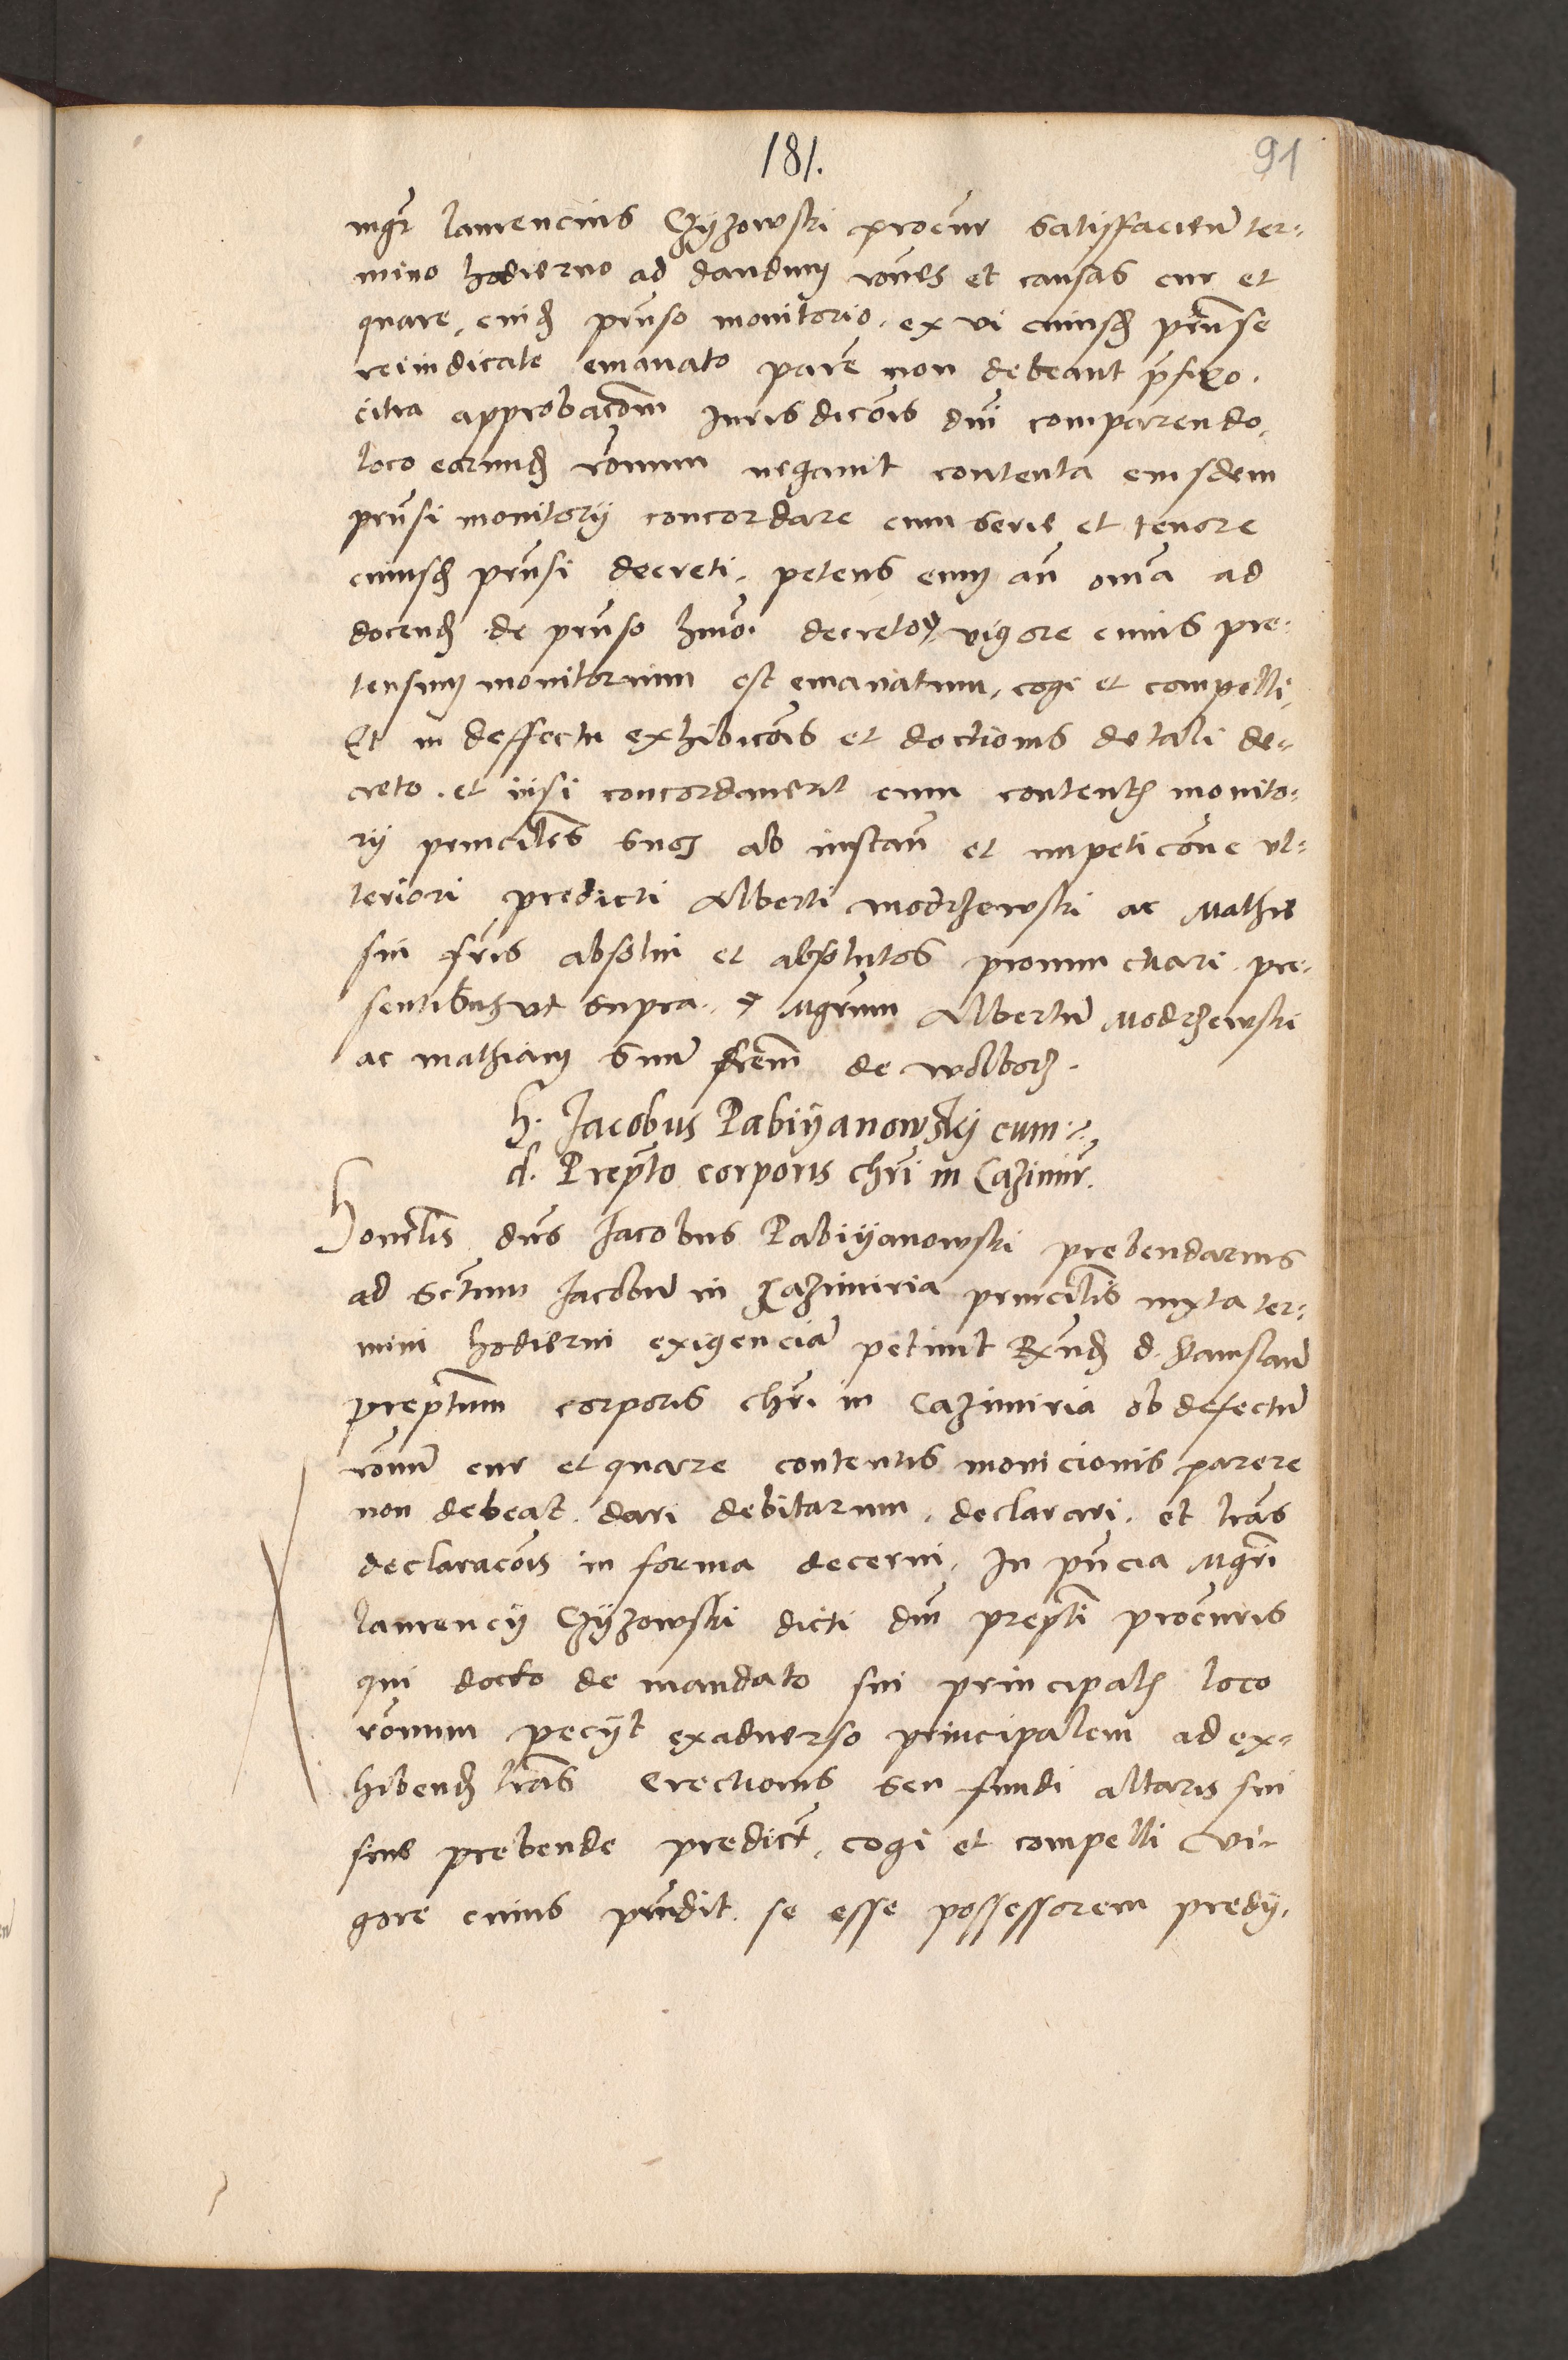 181.
91
mgr̃ laurencius Czyzowski procur̃ satisffacien̄ ter-
mino hodierno ad dandum rōnes et causas cur et
quare, cuid̃ pr̃nso monitorio, ex vi cuiusd̃ pr̃nse
reiudicate emanato parẽ non debeant p̃fixo.
citra approbacōm Jurisdicōis dni comparendo.
loco earund̃ rōnum negauit contenta eiusdem
pr̃nsi monitorij concordare cum serie et tenore
cuiusd̃ pr̃nsi decreti. petens eum añ om̃a ad
docend̃ de pr̃nso hmōi decreto, vigore cuius pre-
tensum monitorium est emanatum, cogi et compelli,
Et in deffectu exhibicōis et doctionis de tali de-
creto et nisi concordauerit cum content̃ monito-
rij principales suos ab instañ et impeticōne vl-
teriori predicti Alberti modrzewski ac Mathie
sui fr̃is absolui et absolutos pronunctiari. pre-
sentibus vt supra. Mgr̃um Albertũ Modrzewski
ac mathiam suũ fr̃em de wolborz.
h. Jacobus Pabiyanowskj cum
d. Prepto corporis chri in Cazimir̃.
Honorabilis dns Jacobus Pabiyanowski prebendarius
ad Sctum Jacobũ in Kazimiria principalis iuxta ter-
mini hodierni exigenciã petiuit Rnd̃ d. Stanislaũ
preptum corporis chri in Cazimiria ob defectũ
rōnũ cur et quare contentis monicionis parere
non debeat dari debitarum, declarari, et lr̃as
declaracōis in forma decerni, In pñcia Mgr̃i
laurencij Czyzowski dicti dni prepti procuris
qui docto de mandato sui principalis loco
rōnum pecijt exaduerso principalem ad ex-
hibend̃ lr̃as erectionis seu fundi altaris sui
siue prebende predict̃, cogi et compelli vi-
gore cuius pr̃ndit se esse possessorem predij,